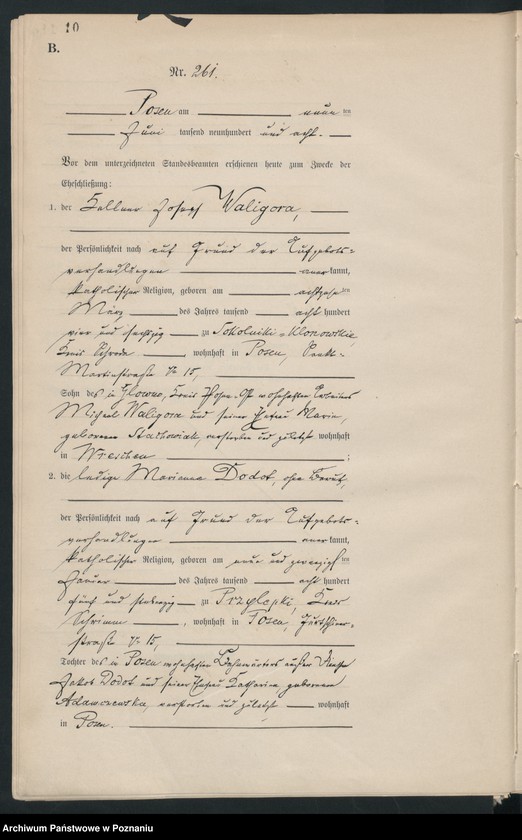 10
B.
Nr. 261.
Posen am neun ten
Juni tausend neunhundert und acht.
Vor dem unterzeichneten Standesbeamten erschienen heute zum Zwecke der
Eheschließung:
1. der Kellner Josef Waligora,
der Persönlichkeit nach auf Grund der Aufgebots=
verhandlungen anerkannt,
katholischer Religion, geboren am achtzehn ten
März des Jahres tausend acht hundert
vier und sechzig zu Sokolniki-Klonowskie,
Kreis Schroda wohnhaft in Posen, Sankt=
Martinstraße No 15,
Sohn des in Glowno, Kreis Posen-Ost wohnhaften Arbeiters
Michael Waligora und seiner Ehefrau Marie,
geborenen Stachowiak, verstorben und zuletzt wohnhaft
in Wreschen ;
2. die ledige Marianna Dodot, ohne Beruf,
der Persönlichkeit nach auf Grund der Aufgebots=
verhandlungen anerkannt,
katholischer Religion, geboren am neun und zwanzig ten
Januar des Jahres tausend acht hundert
fünf und siebenzig zu Przylepki, Kreis
Schrimm , wohnhaft in Posen,
straße No 15,
Tochter des in Posen wohnhaften Bahnwärters außer Dienst
Jakob Dodot und seiner Ehefrau Katharina geborenen
Adamczewska, verstorben und zuletzt wohnhaft
in Posen.
Archiwum Państwowe w Poznaniu
szukajwarchiwach.gov.pl